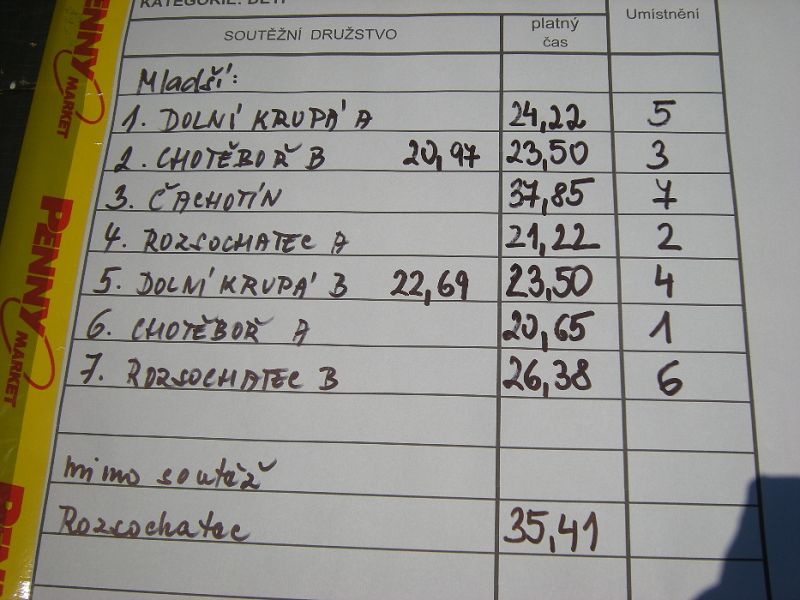 KATEGORIE: DĚTI
SOUTĚŽNÍ DRUŽSTVO platný čas Umístnění
Mladší:
1. DOLNÍ KRUPÁ A 24,22 5
2. CHOTĚBOŘ B 20,97 23,50 3
3. ČACHOTÍN 37,85 7
4. ROZSOCHATEC A 21,22 2
5. DOLNÍ KRUPÁ B 22,69 23,50 4
6. CHOTĚBOŘ A 20,65 1
7. ROZSOCHATEC B 26,38 6
mimo soutěž
Rozsochatec 35,41
PENNY MARKET
PENNY MARKET
PENN